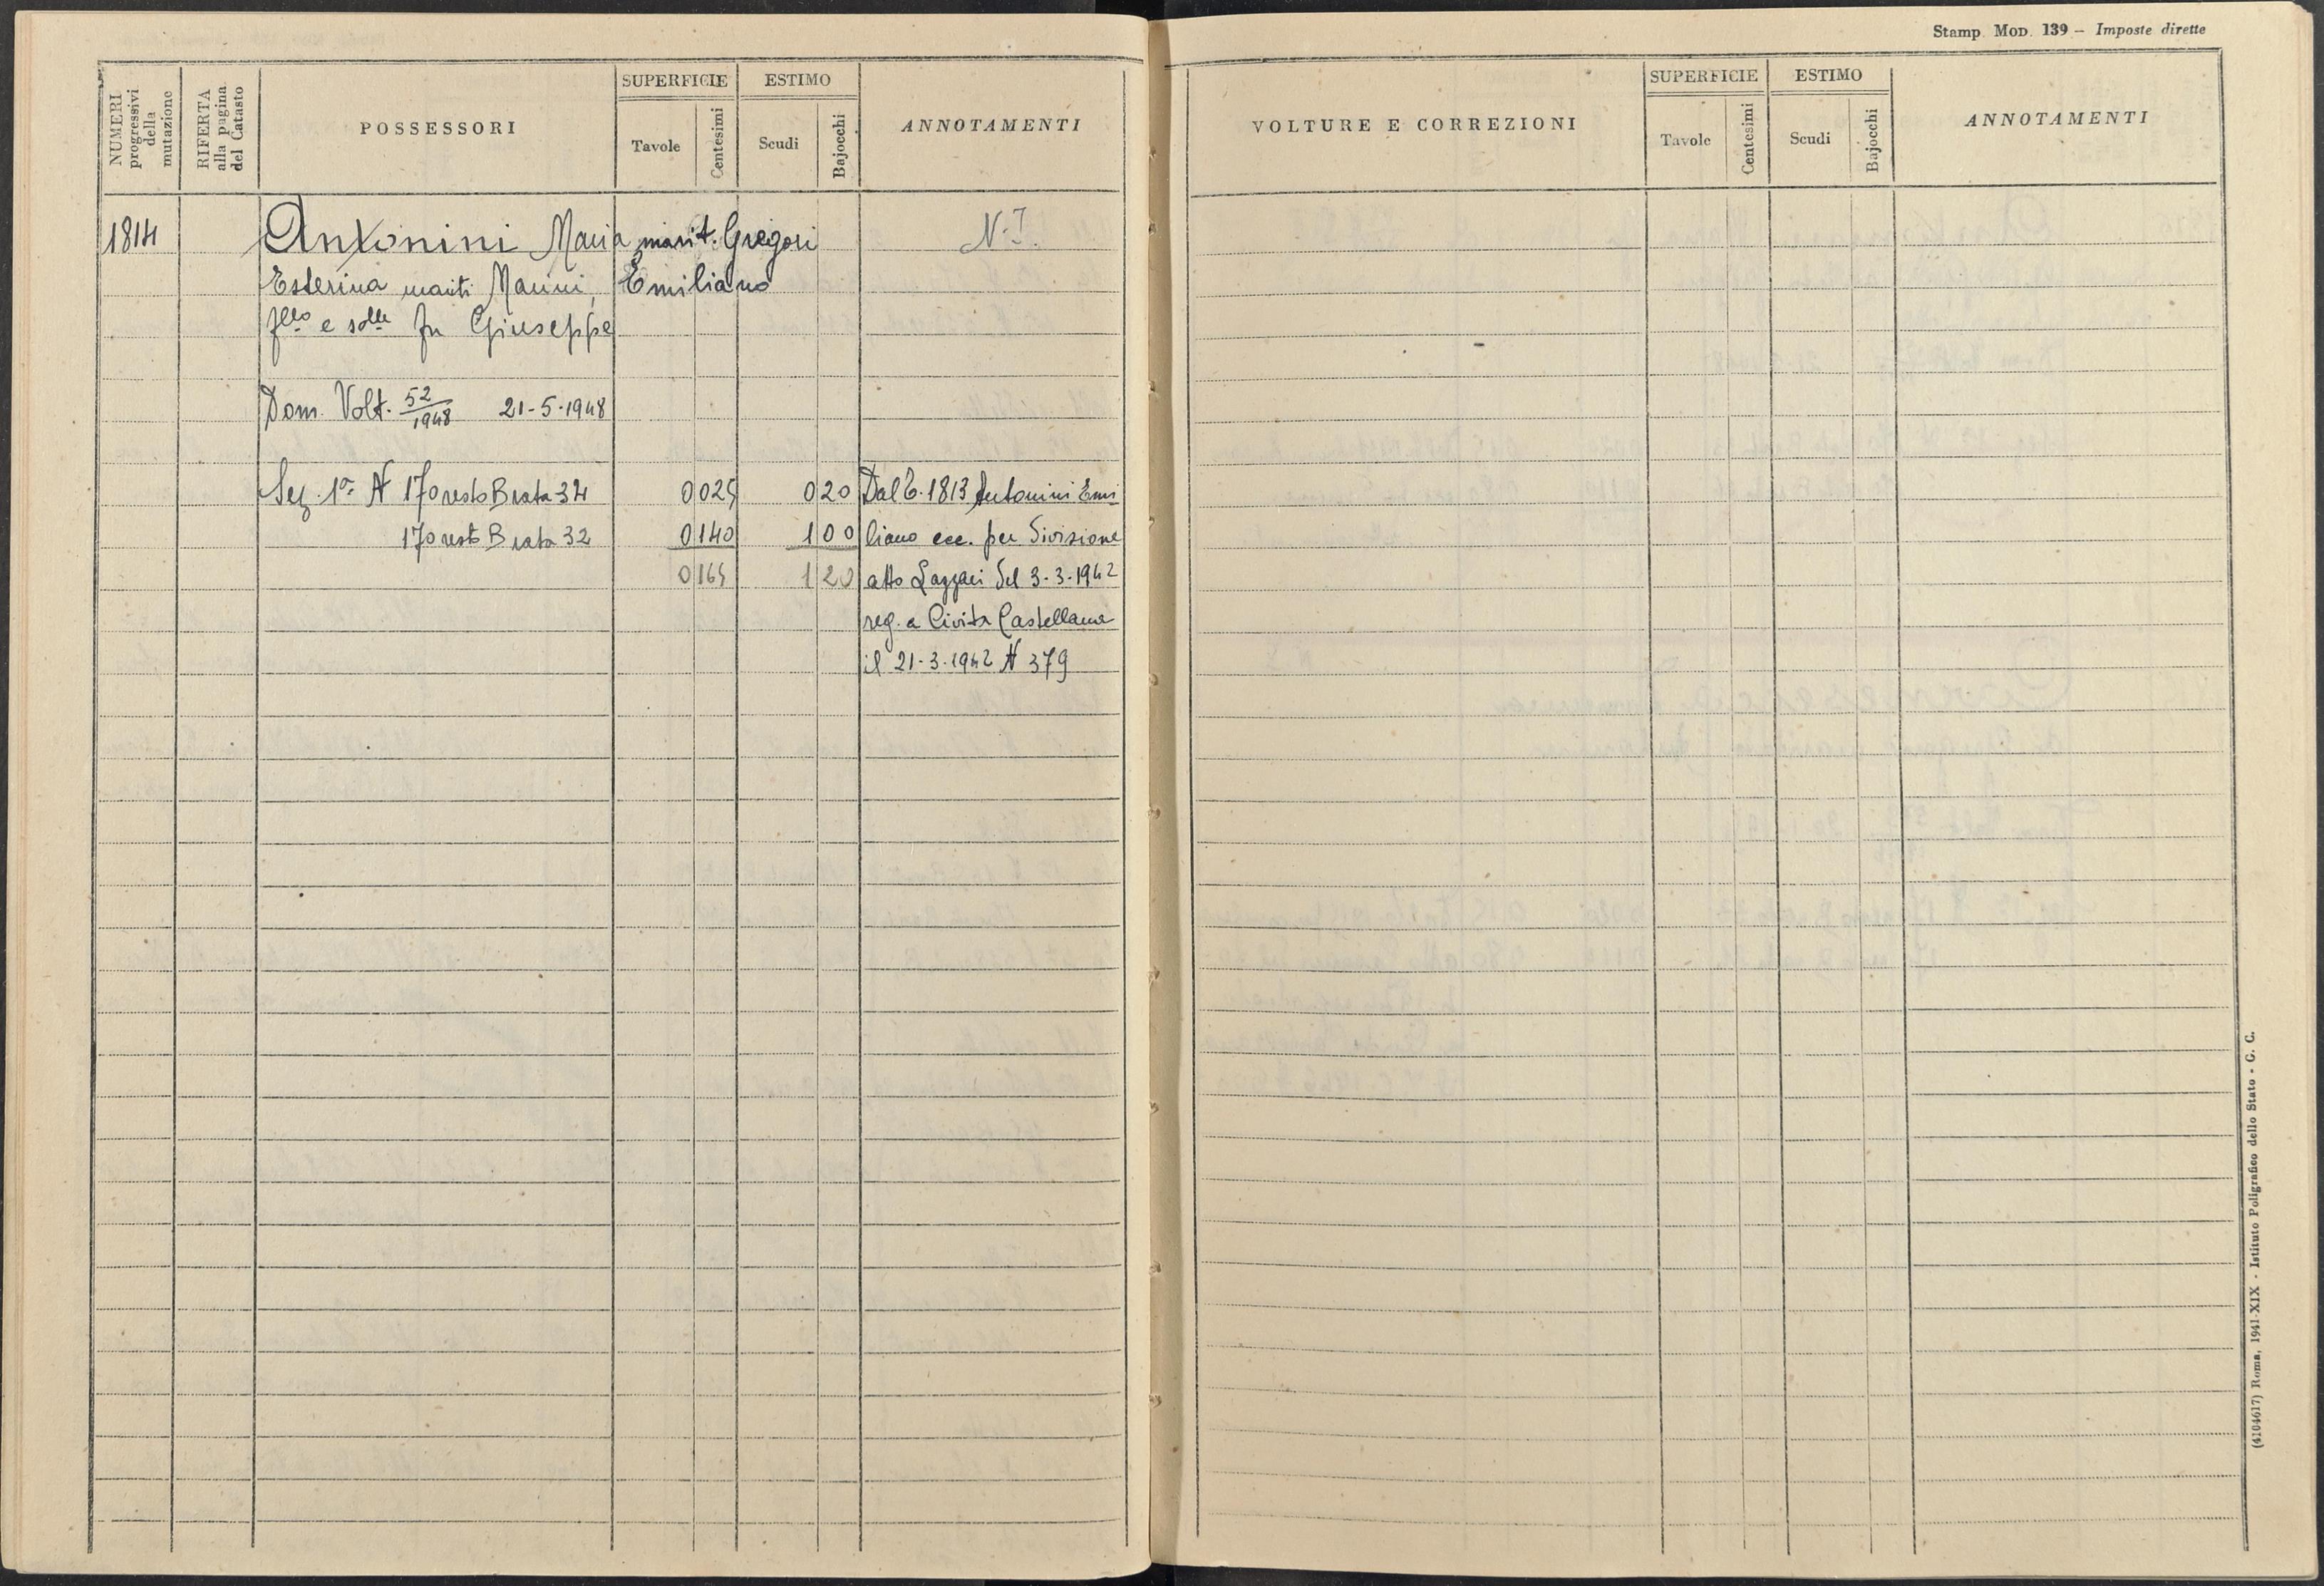 Stamp. MOD. 139 – Imposte dirette
NUMERI progressivi della mutazione
RIFERTA alla pagina del Catasto
POSSESSORI
SUPERFICIE
Tavole
Centesimi
ESTIMO
Scudi
Bajocchi
ANNOTAMENTI
VOLTURE E CORREZIONI
SUPERFICIE
Tavole
Centesimi
ESTIMO
Scudi
Bajocchi
ANNOTAMENTI
1814 Antonini Maria marit. Gregori N.I.
Esterina marit. Marini, Emiliano
flli e slle fu Giuseppe
Dom. Volt. 52/1948 21-5-1948
Sez. 1a N 170 resto B rata 34 0 025 0 20 Dal C. 1813 Antonini Emi
170 resto B rata 32 0 140 1 00 liano ecc. per Divisione
0 165 1 20 atto Lazzari del 3-3-1942
reg. a Civita Castellana
il 21-3-1942 N 379
(4104617) Roma, 1941-XIX - Istituto Poligrafico dello Stato - G. C.